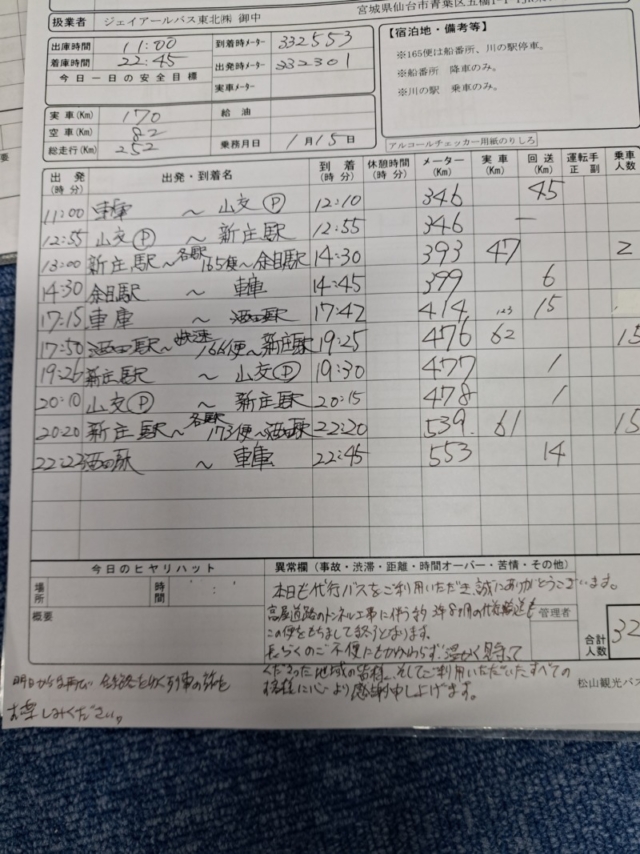 宮城県仙台市青葉区五橋1-1
扱業者 ジェイアールバス東北㈱ 御中
出庫時間 11:00 到着時メーター 332553
着庫時間 22:45 出発時メーター 332301
今日一日の安全目標 実車メーター
【宿泊地・備考等】
※165便は船番所、川の駅停車。
※船番所 降車のみ。
※川の駅 乗車のみ。
実車(Km) 170 給油
空車(Km) 82
総走行(Km) 252 乗務月日 1月15日
アルコールチェッカー用紙のりしろ
出発(時分) 出発・到着名 到着(時分) 休憩時間(時分) メーター(Km) 実車(Km) 回送(Km) 運転手 正 副 乗車人数
11:00 車庫 ~ 山交Ⓟ 12:10 346 45
12:55 山交Ⓟ ~ 新庄駅 12:55 346 ー
13:00 新庄駅~各駅165便~余目駅 14:30 393 47 2
14:30 余目駅 ~ 車庫 14:45 399 6
17:15 車庫 ~ 酒田駅 17:42 414 123 15
17:50 酒田駅~快速166便~新庄駅 19:25 476 62 15
19:26 新庄駅 ~ 山交Ⓟ 19:30 477 1
20:10 山交Ⓟ ~ 新庄駅 20:15 478 1
20:20 新庄駅~各駅173便~酒田駅 22:20 539 61 15
22:23 酒田駅 ~ 車庫 22:45 553 14
今日のヒヤリハット
場所 時間 : :
概要
異常欄(事故・渋滞・距離・時間オーバー・苦情・その他)
本日も代行バスをご利用いただき、誠にありがとうございます。
高屋道路のトンネル工事に伴う約 年8ヶ月の代替輸送も
この便をもちまして終了となります。
長らくのご不便にもかかわらず、温かく見守って
くださった地域の皆様、そしてご利用いただいたすべての
お客様に心より感謝申し上げます。
管理者
合計人数 32
明日から 列車の旅を
お楽しみください。
松山観光バス
要